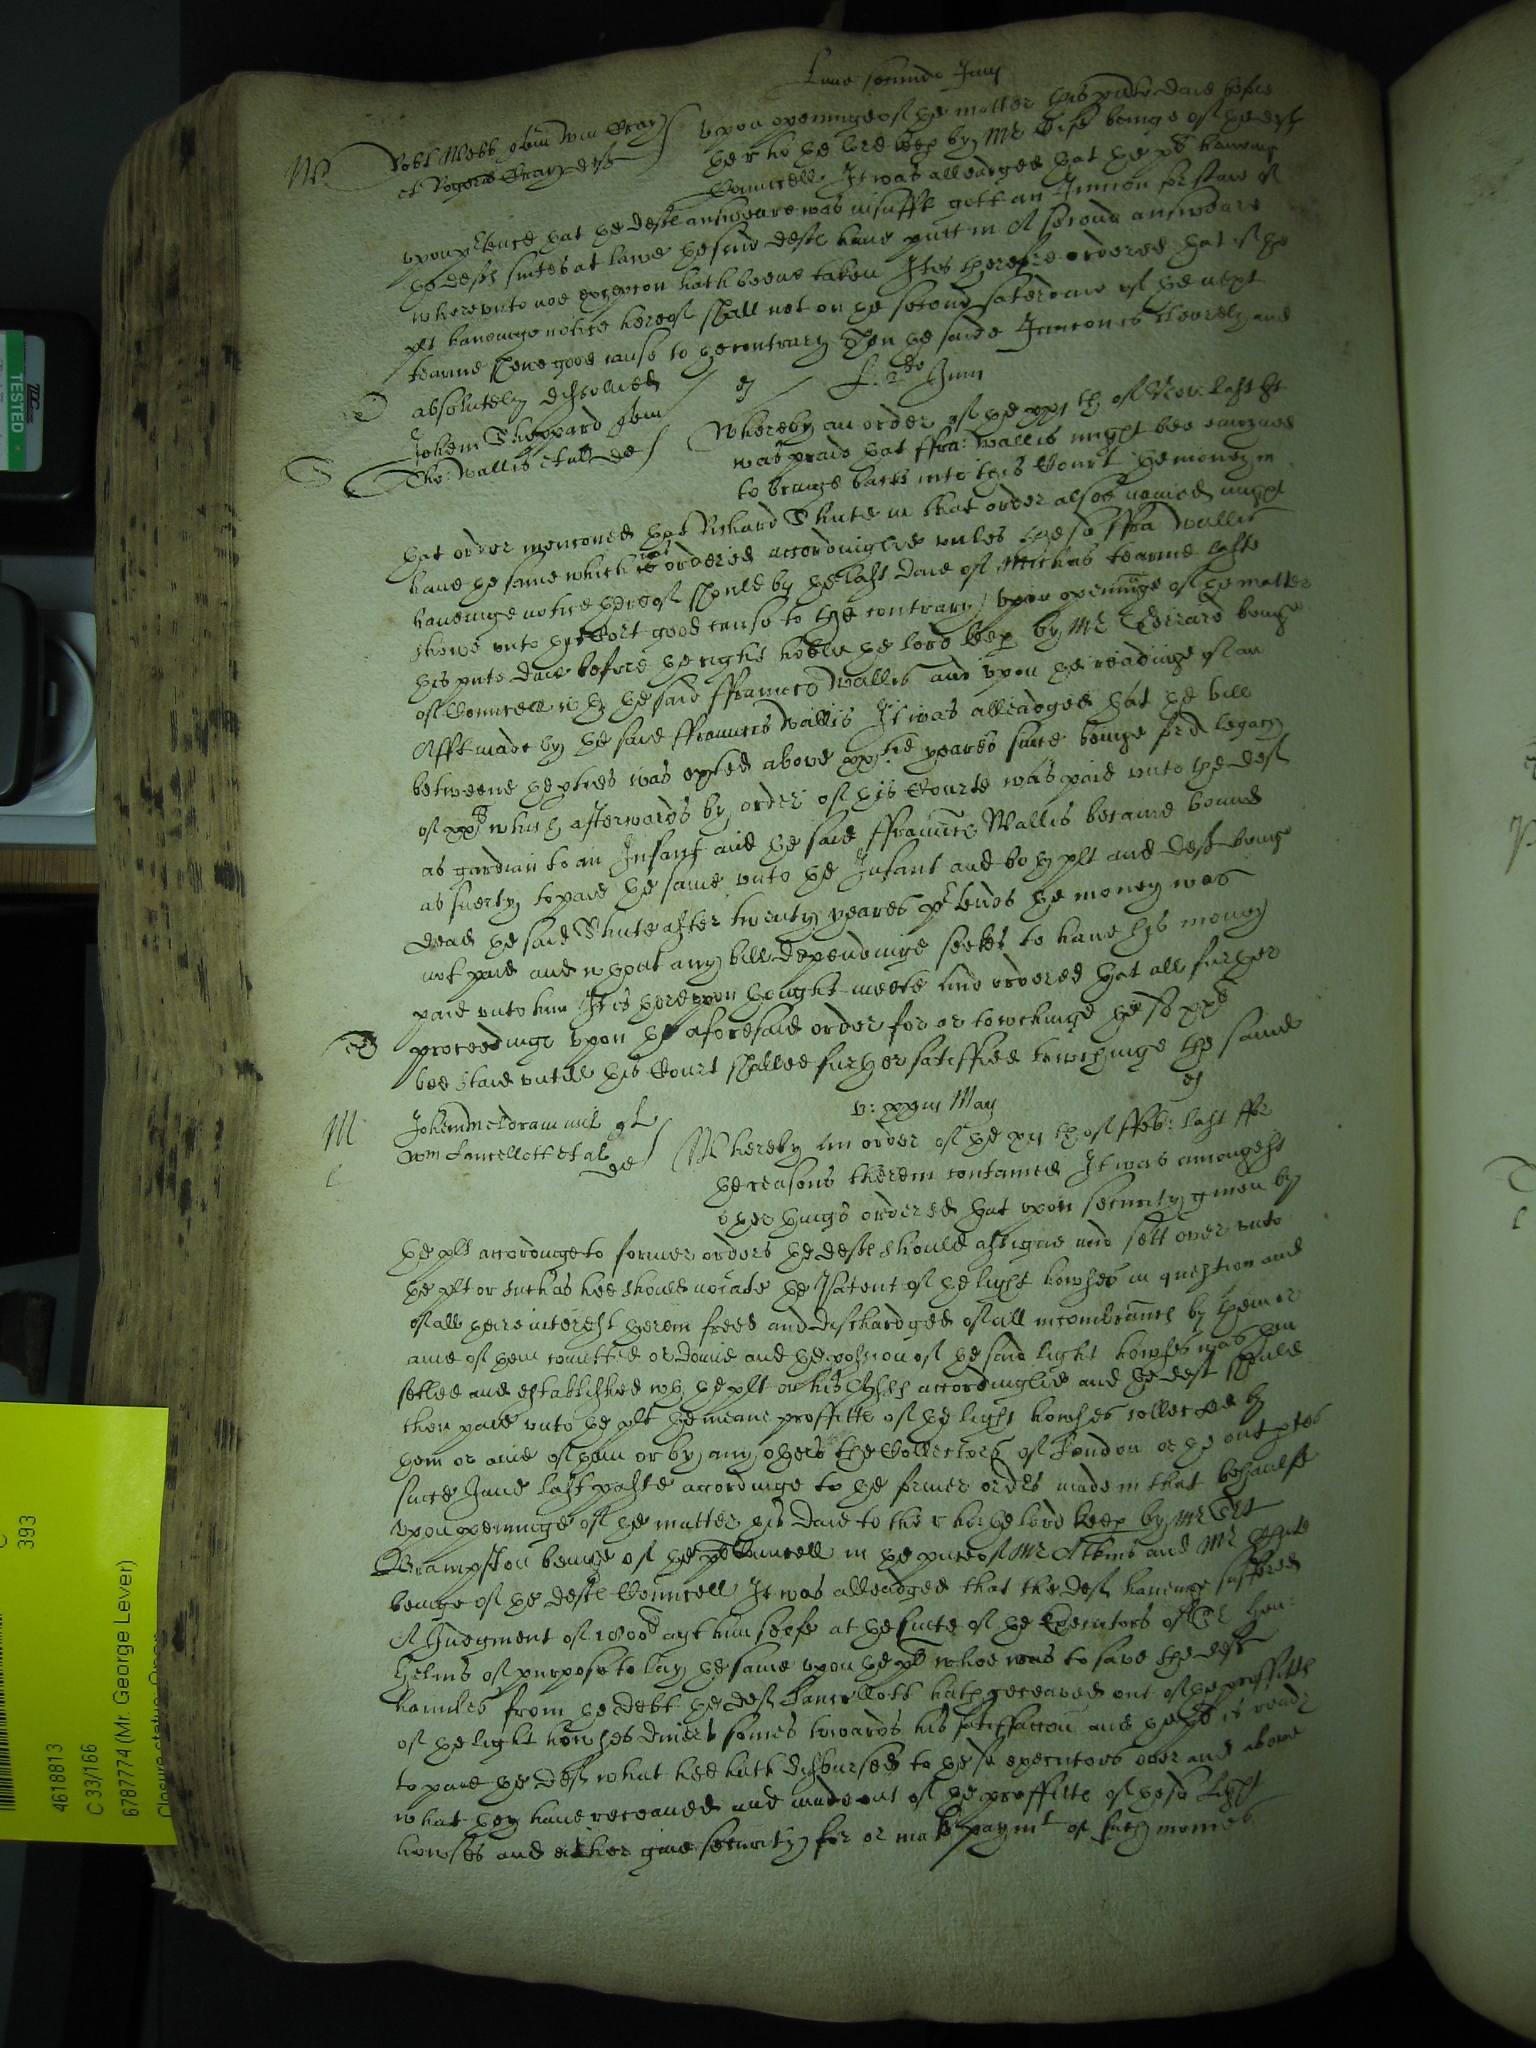 Lune secundo Junij
Robt Webb plt Wm Gray
et Rogerus Gray defts
Upon openinge of the matter this pnte daie before
the r ho: the lord keep by Mr being of the defts
Councell It was alleadged that the plt haveinge
upon p'tence that the defts answeare was insufft gott an Iniuncon for staie of
the defts suites at lawe the said defts have putt in A second answeare
whereunto noe excepcon hath beene taken It is therefore ordered that if the
plt haveinge notice hereof shall not on the second saterdaie of the next
tearme shewe good cause to the contrary Then the saide Iniuncon is cleerely and
absolutely dissolved
L: 2do Junij
Johem Sheppard plt
Tho: Wallis et al de
Whereby an order of the xxjth of Nov: last it
was praid that ffra: Wallis might bee enioyned
to bringe backe into this Court the money in
that order menconed that Richard Shute in that order alsoe named might
have the same which was ordered accordinglie unles the sd ffra Wallis
haveinge notice thereof should by the last daie of Michas tearme last
shewe unto this Court good cause to the contrary, upon openinge of the matter
this pnte daie before the right hoble the lord keep by Mr Gerrard beinge
of Councell wth the said ffrauncis Wallis and upon the readinge of an
Afft made by the said ffrauncis Wallis It was alleadged that the bill
betweene the pties was exhited above xxtie yeares since beinge for a legacy
of xxli which afterwards by order of this Courte was paid unto the deft
as gardian to an Infant and the said ffrauncis Wallis became bound
as suerty to paie the same unto the Infant and both plt and deft beinge
dead the said Shute after twenty yeares p'tends the money was
not paid and wthout any bill dependinge seekes to have this money
paid unto him It is thereupon thought meete and ordered that all further
proceedings upon the aforesaid order for or towchinge the sd xxli
bee staid untill this Court shalbee further satisfied towchinge the same
v: xxx Maij
Johem Meldram mil plt
Wm Lancellott et al de
Whereby an order of the xijth of ffeb: last ffor
the reasons therein contained It was amongest
other things ordered that upon security given by
the plt accordinge to former orders the defts should assigne and sett over unto
the plt or such as hee should nocate the Patent of the light howses in question and
of all theire interest therein freed and dischardged of all incombrances by them or
anie of them comitted or donne and the possion of the said light howses was then
setled and established wth the plt or his Assss accordinglie and the deft should
then paie unto the plt the meane proffitte of the light howses collected by
them or anie of them or by any others the Collectors of London or the outptes
since June last past accordinge to the former ordrs made in that behaulfe
upon openinge of the matter this daie to the r ho: the lord keep by Mr Srt
Brampston beinge of the plts Councell in the pnce of Mr Atkins and Mr Shute
beinge of the defts Councell It was alleadged that the deft haveinge suffered
A Iudgment of 1800li agt him selfe at the suite of the Executors of Sr Hen:
Helms of purpose to lay the same upon the plt whoe was to save the deft
harmles from the debt the deft Lancellott hath receaved out of the proffitte
of the light howses divers somes towards his satisfaccon and the plt is ready
to paie the deft what hee hath disbursed to the sd executors over and above
what they have receaved and made out of the proffitte of those light
howses and either give security for or make paymt of such monies
TESTED
393
4618813
C 33/166
6787774 (Mr. George Lever)
Closure status: Open